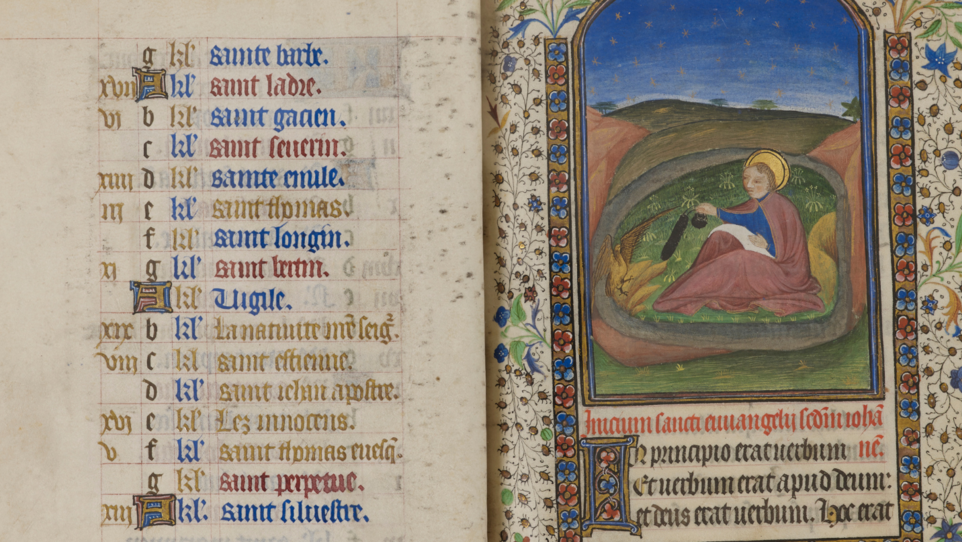 g kl' Sainte barbe.
xvii A kl' Saint ladre.
vi b kl' Saint gacien.
c kl' Saint seuerin.
xiiii d kl' Sainte enule.
iii e kl' Saint thomas.
f kl' Saint longin.
xi g kl' Saint bertin.
A kl' Vigile.
xix b kl' La natiuite nr̄e seigr̄.
viii c kl' Saint estienne.
d kl' Saint iehan apostre.
xvi e kl' Lez innocens.
v f kl' Saint thomas euesq̄.
g kl' Saint perpetue.
xiii A kl' Saint siluestre.
Inicium sancti euuangelij sedm̄ iohā
In principio erat uerbum nē.
Et uerbum erat apud deum:
et deus erat uerbum. Hoc erat